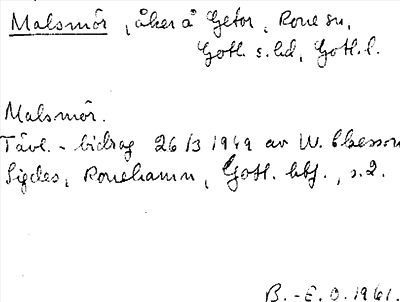 Malsmör, åker å Getor, Rone sn,
Gotl. s. hd, Gotl. l.
Malsmör.
Tävl.-bidrag 26/3 1949 av W. Olsson
Sigdes, Ronehamn, Gotl. hbf., s. 2.
B.-E. O. 1961.